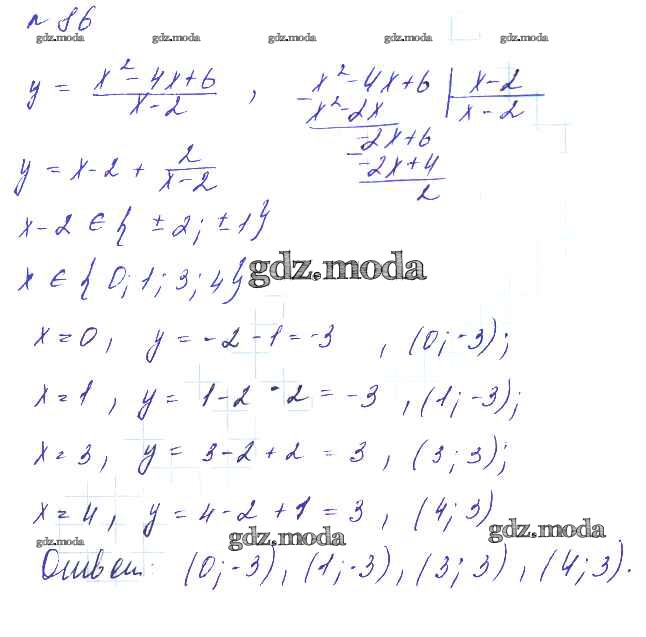 № 86
gdz.moda gdz.moda gdz.moda gdz.moda gdz.moda
y = (x² - 4x + 6)/(x - 2) , x² - 4x + 6 | x - 2
- x² - 2x | x - 2
-2x + 6
- -2x + 4
2
y = x - 2 + 2/(x - 2)
x - 2 ∈ { ± 2; ± 1}
x ∈ { 0; 1; 3; 4}
gdz.moda
x = 0, y = -2 - 1 = -3 , (0; -3);
x = 1 , y = 1 - 2 - 2 = -3 , (1; -3);
x = 3, y = 3 - 2 + 2 = 3 , (3; 3);
x = 4, y = 4 - 2 + 1 = 3 , (4; 3)
gdz.moda gdz.moda gdz.moda
Ответ: (0; -3), (1; -3), (3; 3), (4; 3).